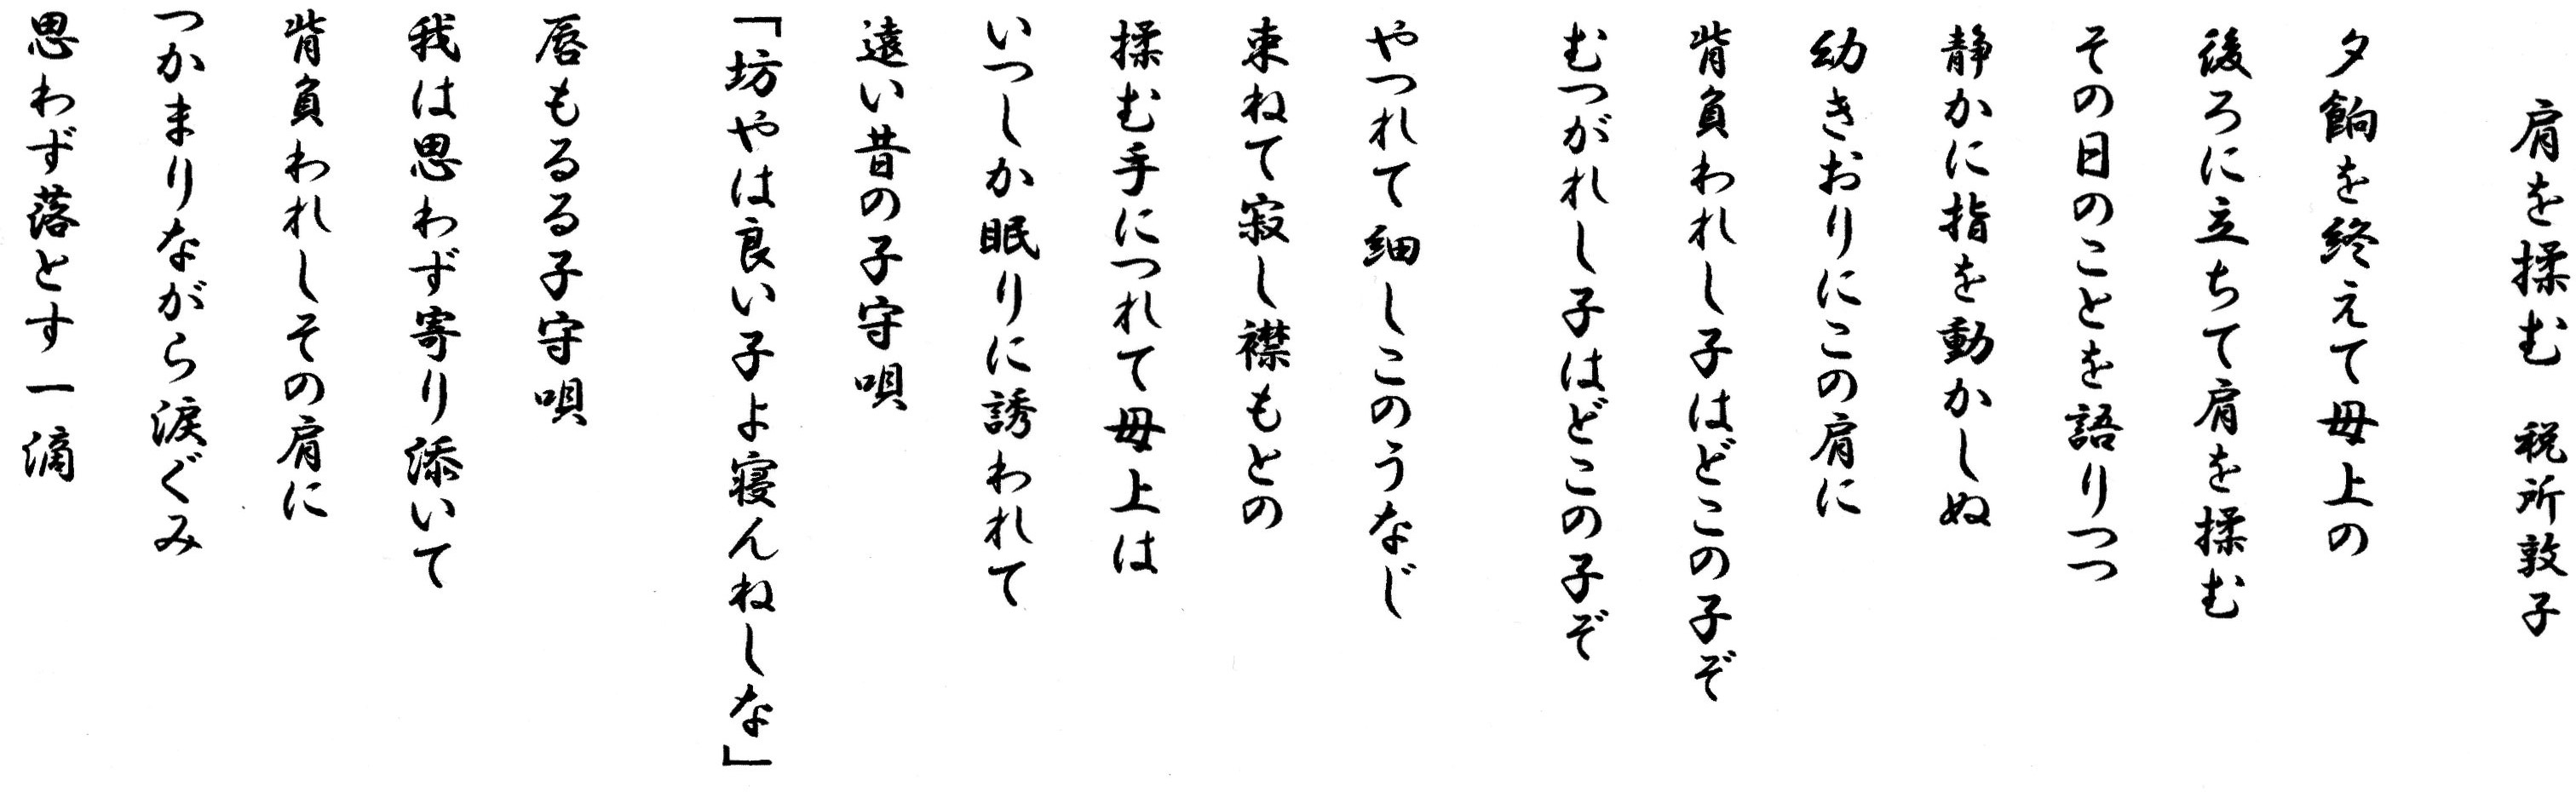 肩を揉む　税所敦子
夕餉を終えて母上の
後ろに立ちて肩を揉む
その日のことを語りつつ
静かに指を動かしぬ
幼きおりにこの肩に
背負われし子はどこの子ぞ
むつがれし子はどこの子ぞ
やつれて細しこのうなじ
束ねて寂し襟もとの
揉む手につれて母上は
いつしか眠りに誘われて
遠い昔の子守唄
「坊やは良い子よ寝んねしな」
唇もるる子守唄
我は思わず寄り添いて
背負われしその肩に
つかまりながら涙ぐみ
思わず落とす一滴